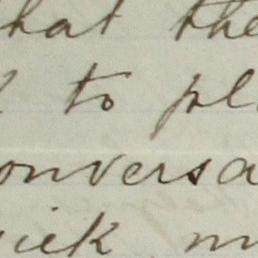 hat the
to pl
onversa
ick m